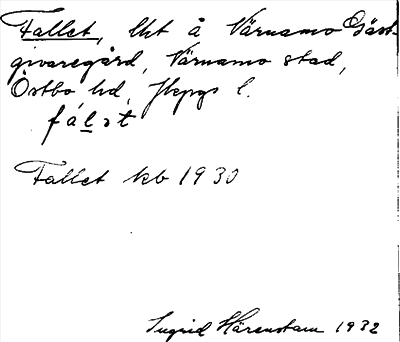 Fallet, lht å Värnamo Gäst-
givaregård, Värnamo stad,
Östbo hd, Jkpgs l.
fálet
Fallet kb 1930
Ingrid Härenstam 1932